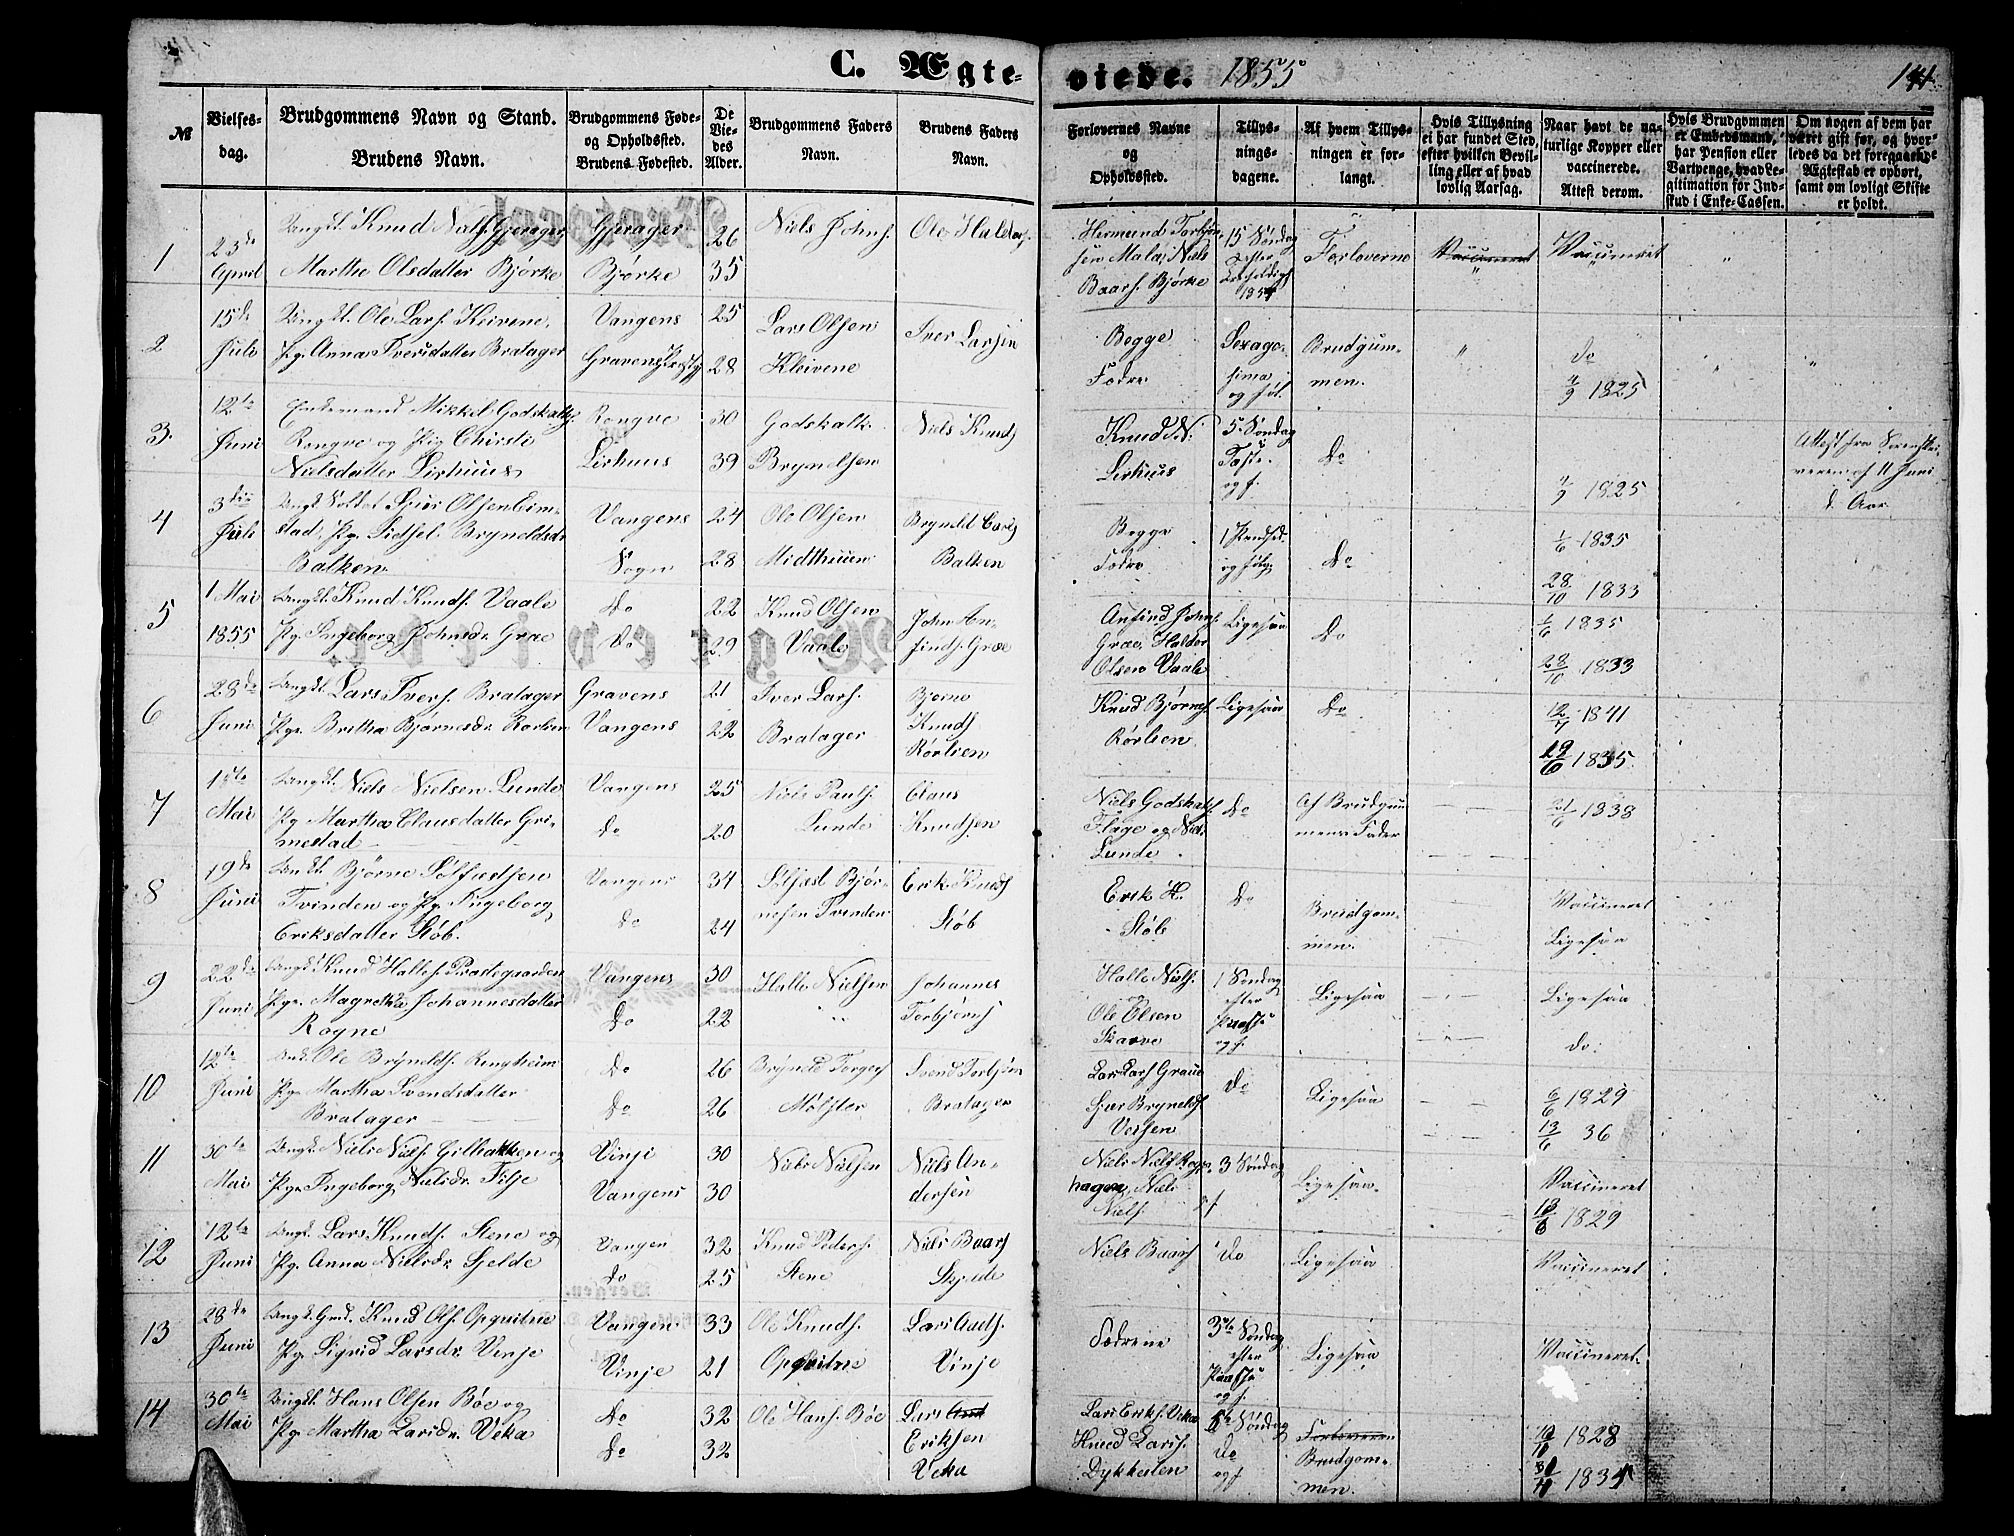 C. Ægte-
viede. 1855
141
№
Vielses-
dag.
Brudgommens Navn og Stand.
Brudens Navn.
Brudgommens Føde-
og Opholdssted.
Brudens Fødested.
De
Vie-
des
Alder.
Brudgommens Faders
Navn.
Brudens Faders
Navn.
Forlovernes Navne
og
Opholdssted.
Tillys-
nings-
dagene.
Af hvem Tillys-
ningen er for-
langt.
Hvis Tillysning
ei har fundet Sted,
efter hvilken Bevil-
ling eller af hvad
lovlig Aarsag.
Naar havt de na-
turlige Kopper eller
vaccinerede.
Attest derom.
Hvis Brudgommen
er Embedsmand,
har Pension eller
Vartpenge, hvad Le-
gitimation for Ind-
skud i Enke-Cassen.
Om nogen af dem har
været gift før, og hvor-
ledes da det foregaaende
Ægteskab er ophørt,
samt om lovligt Skifte
er holdt.
1
23de
April
Ungk. Knud Nielss. Gjerager
Martha Olsdatter Bjørke
Gjerager
Bjørke
26
35
Niels Johns.
Ole Haldors.
Hermund Torbjørn-
sen Mala, Niels
Baars. Bjørke
15 Søndag
efter
1854
Forloverne
Vaccineret
Vaccineret
2
15de
Juli
Ungk. Ole Lars. Kleivene,
Pg. Anna Iversdatter Bratager
Vangens
Gravens Præstg
25
28
Lars Olsen
Kleivene
Iver Larsen
Begge
Fædre
Sexage-
sima
og føl.
Brudgum-
men.
do
4/9 1825
3
12te
Juni
Enkemand Mikkel Godskalks.
Rongve og Pig Christi
Nielsdatter Lirhuus
Rongve
Lirhuus
30
39
Godskalk
Bryndelsen
Niels Knuds
Knud N.
Lirhuus
5 Søndag
Faste
og f.
Do
4/9 1825
Attest fra Sorenskri-
veren af 11 Juni
d. Aar
4
3die
Juli
Ungk. Soldat Sjur Olsen Eim-
stad, Pg. Sidsel Bryneldsdr.
Balken
Vangens
Sogn
24
28
Ole Olsen
Midthuun
Bryneld Lars
Balken
Begge
Fædre
Do
1/6 1835
28/10 1833
5
1 Mai
1855
Ungk. Knud Knuds. Vaale
Pg. Ingeborg Johnsdr. Græe
Do
Do
22
29
Knud Olsen
Vaale
John An-
finds. Græe
Anfind Johns.
Græe, Haldor
Olsen Vaale
Ligesaa
Do
1/6 1835
28/10 1833
6
28de
Juni
Ungk. Lars Ivers. Bratager
Pge. Britha Bjørnesdr. Rørlien
Gravens
Vangens
21
22
Iver Lars.
Bratager
Bjørne
Knuds
Rørlien
Knud Bjørnes.
Rørlien
Ligesaa
Do
12/7 1841
29/6 1835
7
15te
Mai
Ungk. Niels Nielsen Lunde
Pg. Martha Clausdatter Gri-
mestad
Vangens
do
25
20
Niels Pauls.
Lunde
Claus
Knudsen
Niels Godskalks.
Flage og Niels
Lunde
do
Af Brudgum-
mens Fader
21/6 1838
8
19de
Juni
Ungk. Bjørne Sølfæstsen
Tvinden og Pg. Ingeborg
Eriksdatter Støb.
Vangens
do
34
24
Sølfæst Bjør-
nesen Tvinden
Erik Knuds
Støb
Erik K.
Støb
do
Brudgom-
men.
Vaccineret
Ligesaa
9
22de
Juni
Ungk. Knud Halles. Præstegaarden
Pge. Magretha Johannesdatter
Rogne
Vangens
Do
30
22
Halle Nielsen
Johannes
Torbjørns
Halle Niels.
og
Ole Olsen
Skarve
1 Søndag
efter
Paaske
og f.
Ligesaa
Ligesaa
do.
10
12te
Juni
Ungk. Ole Bryneldss. Ringheim
Pge. Martha Svendsdatter
Bratager
Do
Do
26
26
Bryneld Torgers
Mølster
Svend Torbjørn
Bratager
Lars Lars Graue
Sjur Bryneldss.
do
Ligesaa
6/6 1829
13/6 36
11
30te
Mai
Ungk. Niels Niels. Gilbakken og
Pge. Ingeborg Nielsdr. Tilje
Vinje
Vangens
30
30
Niels Nielsen
Niels An-
dersen
Niels Niels Rogn-
hagen, Niels
Niels.
3 Søndag
Ligesaa.
Vaccineret
1829
12
12te
Juni
Ungk. Lars Knuds. Stene og
Pg. Anna Nielsdr. Sjelde
Vangen
do
32
25
Knud Peders.
Stene
Niels Baars
Skjelde
Niels Baars
do
Ligesaa
Vaccineret
13
28de
Juni
Ungk. Gmd. Knud Ols. Opquitne
Pg. Sigrid Larsdr. Vinje
Vangen.
Vinje
33
21
Ole Knuds.
Opquitne
Lars
Vinje
Fædrene
3die Søndag
efter
Paaske
og f.
Ligesaa
Vaccineret
14
30te
Mai
Ungk. Hans Olsen Bøe og
Pg. Martha Larsdr. Veka
do
Do
32
32
Ole Hans. Bøe
Lars
Eriksen
Veka
Lars Eriks. Veka
Knud Larss.
Dykkesten
Søndag
do
og f.
Forloveren
Brudgom-
men.
1828
1834